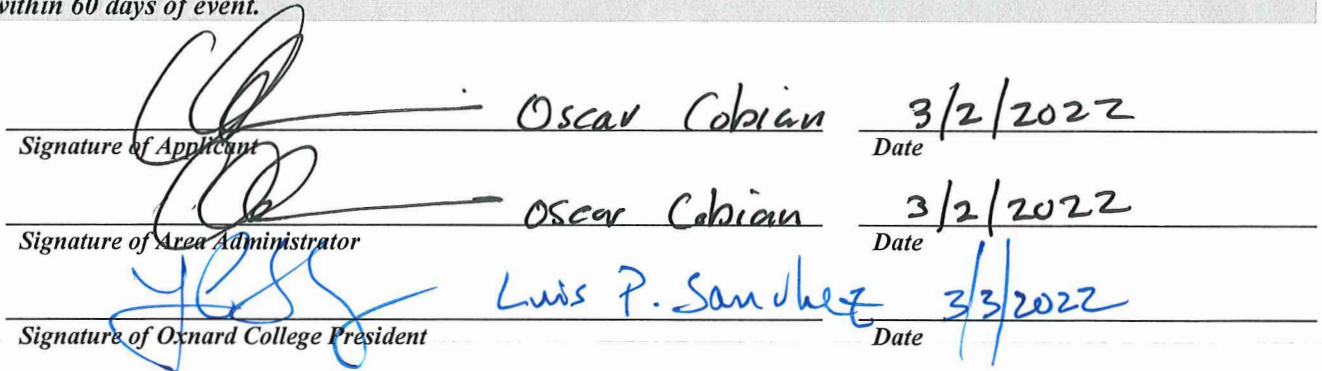 within 60 days of event.
Oscar Cobian 3/2/2022
Signature of Applicant Date
Oscar Cobian 3/2/2022
Signature of Area Administrator Date
Luis P. Sanchez 3/3/2022
Signature of Oxnard College President Date